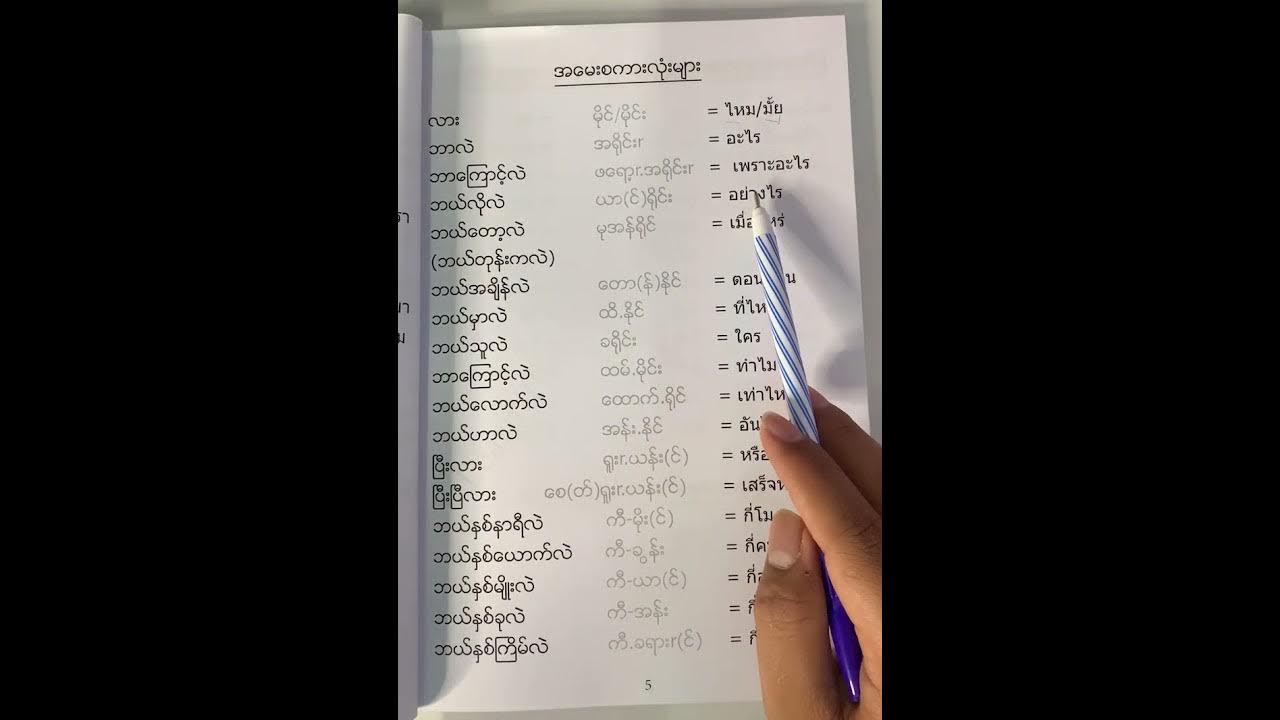 အမေးစကားလုံးများ
လား မိုင်/မိုင်း = ไหม/มั้ย
ဘာလဲ အရိုင်းr = อะไร
ဘာကြောင့်လဲ ဖရော့r.အရိုင်းr = เพราะอะไร
ဘယ်လိုလဲ ယာ(င်)ရိုင်း = อย่างไร
ဘယ်တော့လဲ မုအန်ရိုင် =
(ဘယ်တုန်းကလဲ)
ဘယ်အချိန်လဲ တော(န်)နိုင် =
ဘယ်မှာလဲ ထိ.နိုင် =
ဘယ်သူလဲ ခရိုင်း = ใคร
ဘာကြောင့်လဲ ထမ်.မိုင်း = ทำไม
ဘယ်လောက်လဲ ထောက်.ရိုင် =
ဘယ်ဟာလဲ အန်း.နိုင် =
ပြီးလား ရူးr.ယန်း(င်) =
ပြီးပြီလား စေ(တ်)ရူးr.ယန်း(င်) =
ဘယ်နှစ်နာရီလဲ ကီ-မိုး(င်) =
ဘယ်နှစ်ယောက်လဲ ကီ-ခွန်း =
ဘယ်နှစ်မျိုးလဲ ကီ-ယာ(င်) =
ဘယ်နှစ်ခုလဲ ကီ-အန်း =
ဘယ်နှစ်ကြိမ်လဲ ကီ.ခရားr(င်) =
5